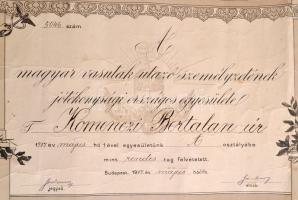 szám.
A
magyar vasutak utazó személyzetének
jótékonysági országos egyesülete
T. Komenczi Bertalan úr
1917. év május hó 1ével egyesületünk A osztályába
mint rendes tag felvétetett.
Budapest, 1917. év május
jegyző. elnök.